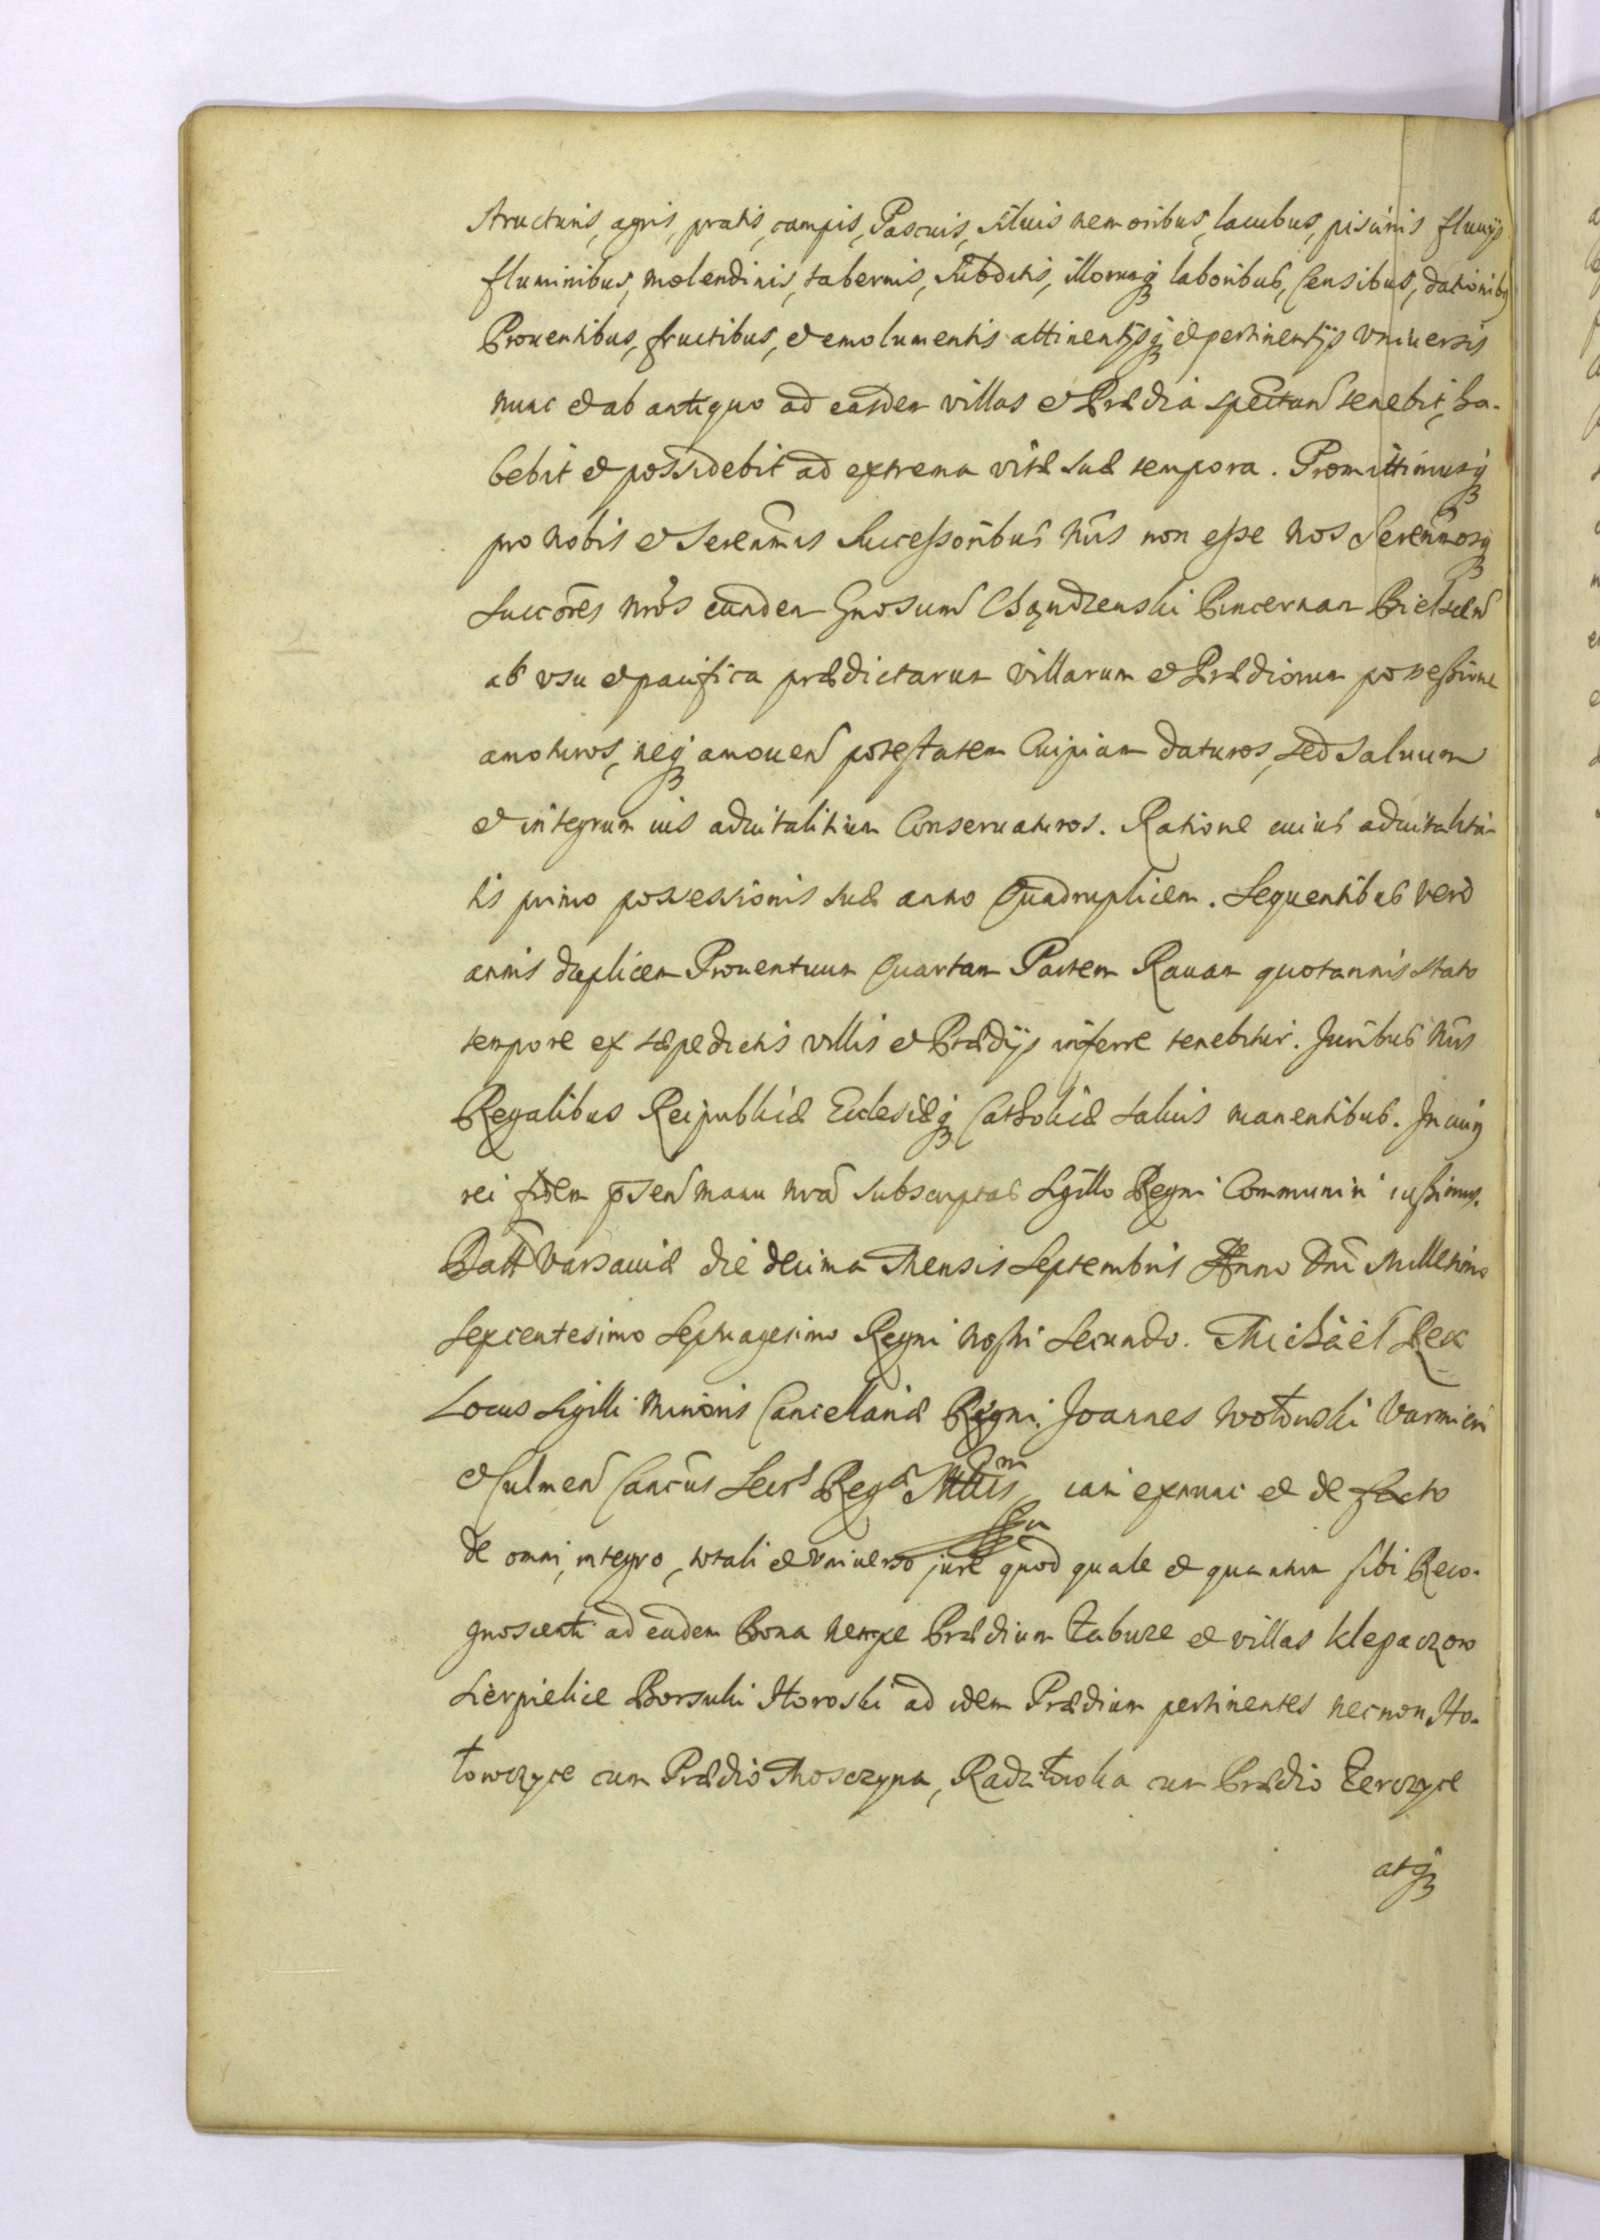 structuris, agris, pratis, campis, Pascuis, siluis nemoribus, lacubus, piscinis fluuijs
fluminibus, molendinis, tabernis, subditis, illorumq3 laboribus, Censibus, dationibq
Prouentibus, fructibus, et emolumentis attinentijsq3 et pertinentijs vniuersis
nunc et ab antiquo ad easdem villas et Prædia spectan tenebit, ha-
bebit et possidebit ad extrema vitæ suæ tempora. Promittimusq3
pro nobis et Serenmis Successoribus nr̃is non esse nos Serenmosq3
succores nr̃os eundem Gnosum Chądzenski Pincernam Bielscen
ab vsu et pacifica prædictarum villarum et Prædiorum possessione
amoturos, neq3 amouen potestatem Cuipiam daturos, sed saluum
et integrum ius aduitalitium Conseruaturos. Ratione cuius aduitalita-
tis primo possessionis suæ anno Quadruplicem. Sequentibus vero
annis duplicem Prouentuum Quartam Partem Rauam quotannis stato
tempore ex sæpedictis villis et Prædijs inferre tenebitur. Juribus nr̃is
Regalibus Reipublicæ Ecclesiæq3 Catholicæ saluis manentibus. In cuiq
rei fidem p̃sen manu nr̃a subscriptas Sigillo Regni Communiri iussimus.
Datt Varsauiæ die decima Mensis Septembris Anno Dni Millesimo
Sexcentesimo Septuagesimo Regni nostri Secundo. Michaël Rex
Locus Sigilli minoris Cancellariæ Regni. Joannes Wołowski Varmien
et Culmen Cancus Secrs Regæ Mttis mp iam exnunc et de facto
de omni, integro, totali et vniuerso jure quod quale et quantum sibi Reco-
gnoscenti ad eadem Bona nempe Prædium Łabuze et villas Klepaczow
Sierpielice Borsuki Horoski ad idem Prædium pertinentes necnon Ho-
łowczyce cum Prædio Mosczyna, Radziłowka cum Prædio Zerczyce
atq3